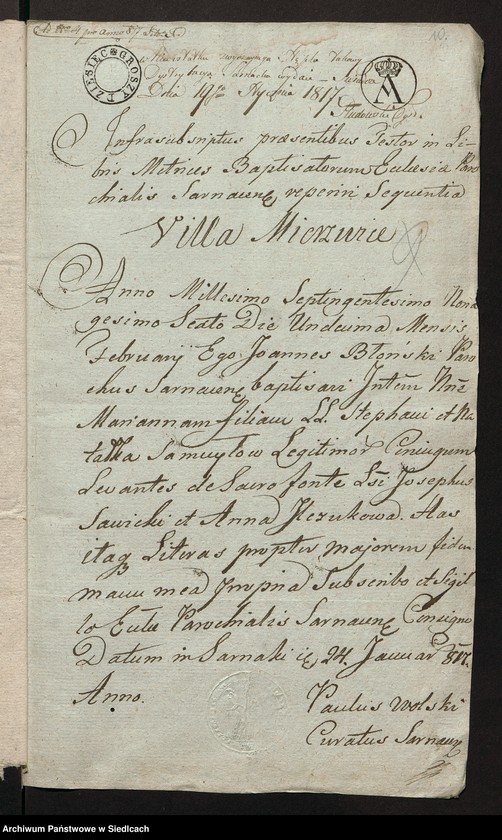 pro Anno 817
10.
DZIESIĘC GROSZY
M
w Niedostatku
Dnia 19go Stycznia 1817
Infrascriptus præsentibus Testor in Li-
bris Metrices Baptisatorum Eclesiæ Paro
chialis Sarnacensę reperiri Sequentia
Villa Mierzwice
Anno Millesimo Septingentesimo Nona
gesimo Sexto Die Undecima Mensis
Februarij Ego Joannes Błoński Paro
chus Sarnacensę baptisavi Infēm Nnē
Mariannam filiam LL. Stephani et Na
talka Samuylow Legitimor Coniugum
Levantes de Sacro fonte Lsi Josephus
Sawicki et Anna Has
itaq Literas propter majorem fidem
manu mea propria Subscribo et Sigil
lo Eccla Parochialis Sarnacensę Consigno
Datum in Sarnaki 24. Januar 817.
Anno.
Paulus Wolski
Curatus Sarnacen
Archiwum Państwowe w Siedlcach